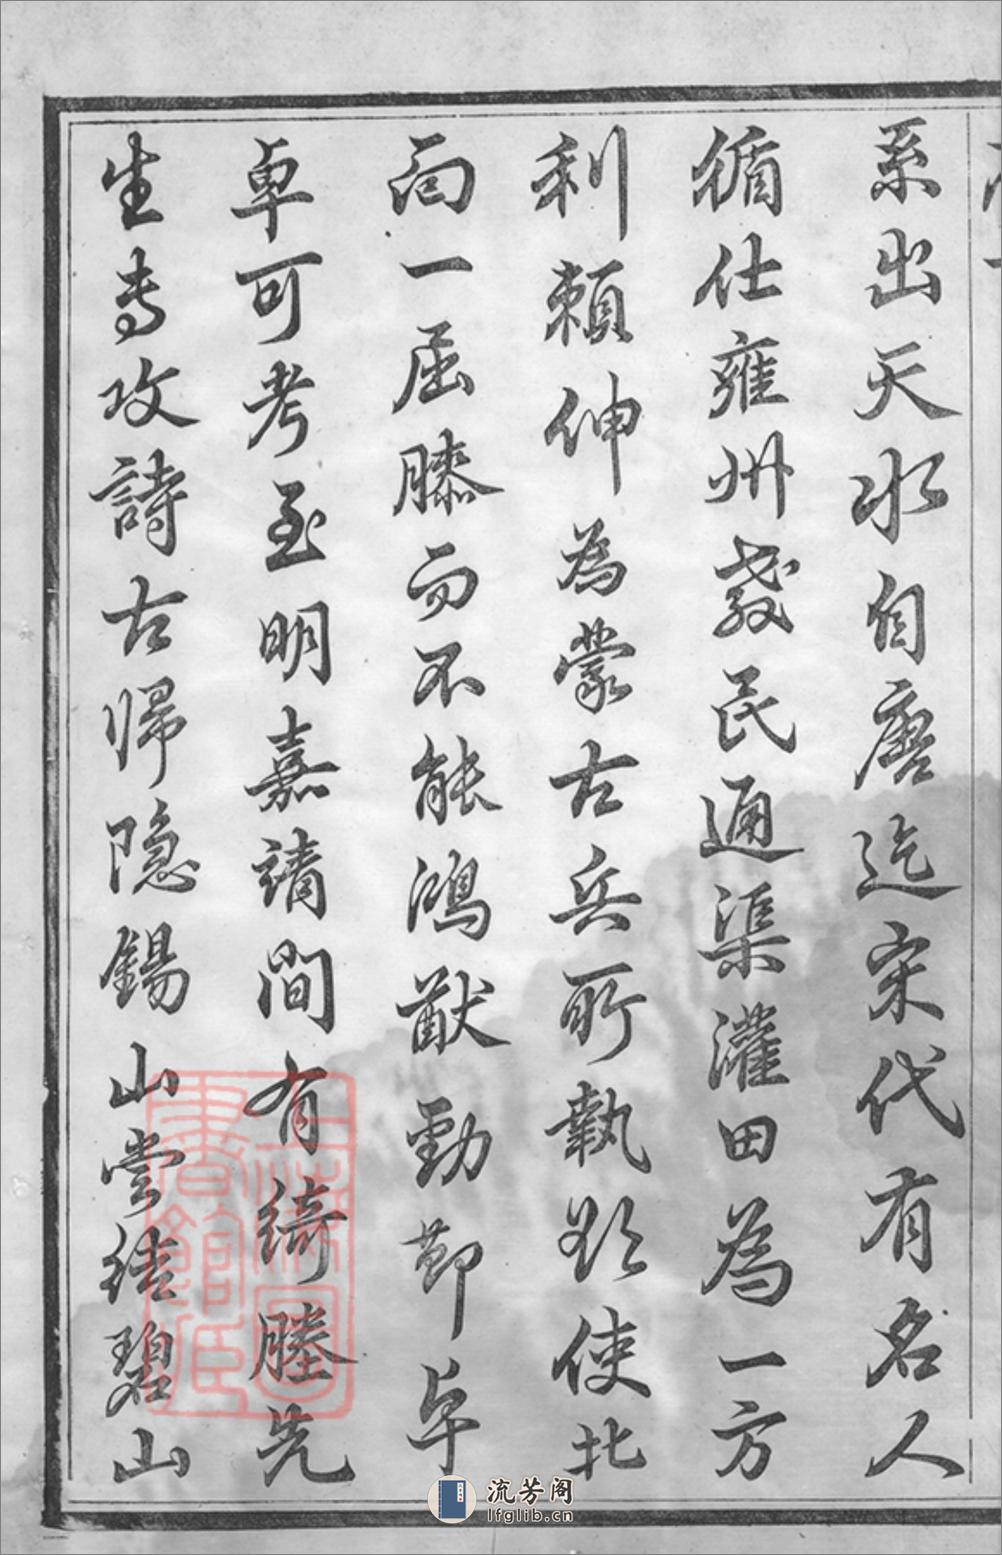 系出天水自唐迄宋代有名人
循仕雍州教民通渠灌田為一方
利賴伸為蒙古兵所執欲使北
面一屈膝而不能鴻猷勁節卓
卓可考至明嘉靖間有綺塍先
生專攻詩古歸隱錫山嘗結碧山
流芳阁
lfglib.cn